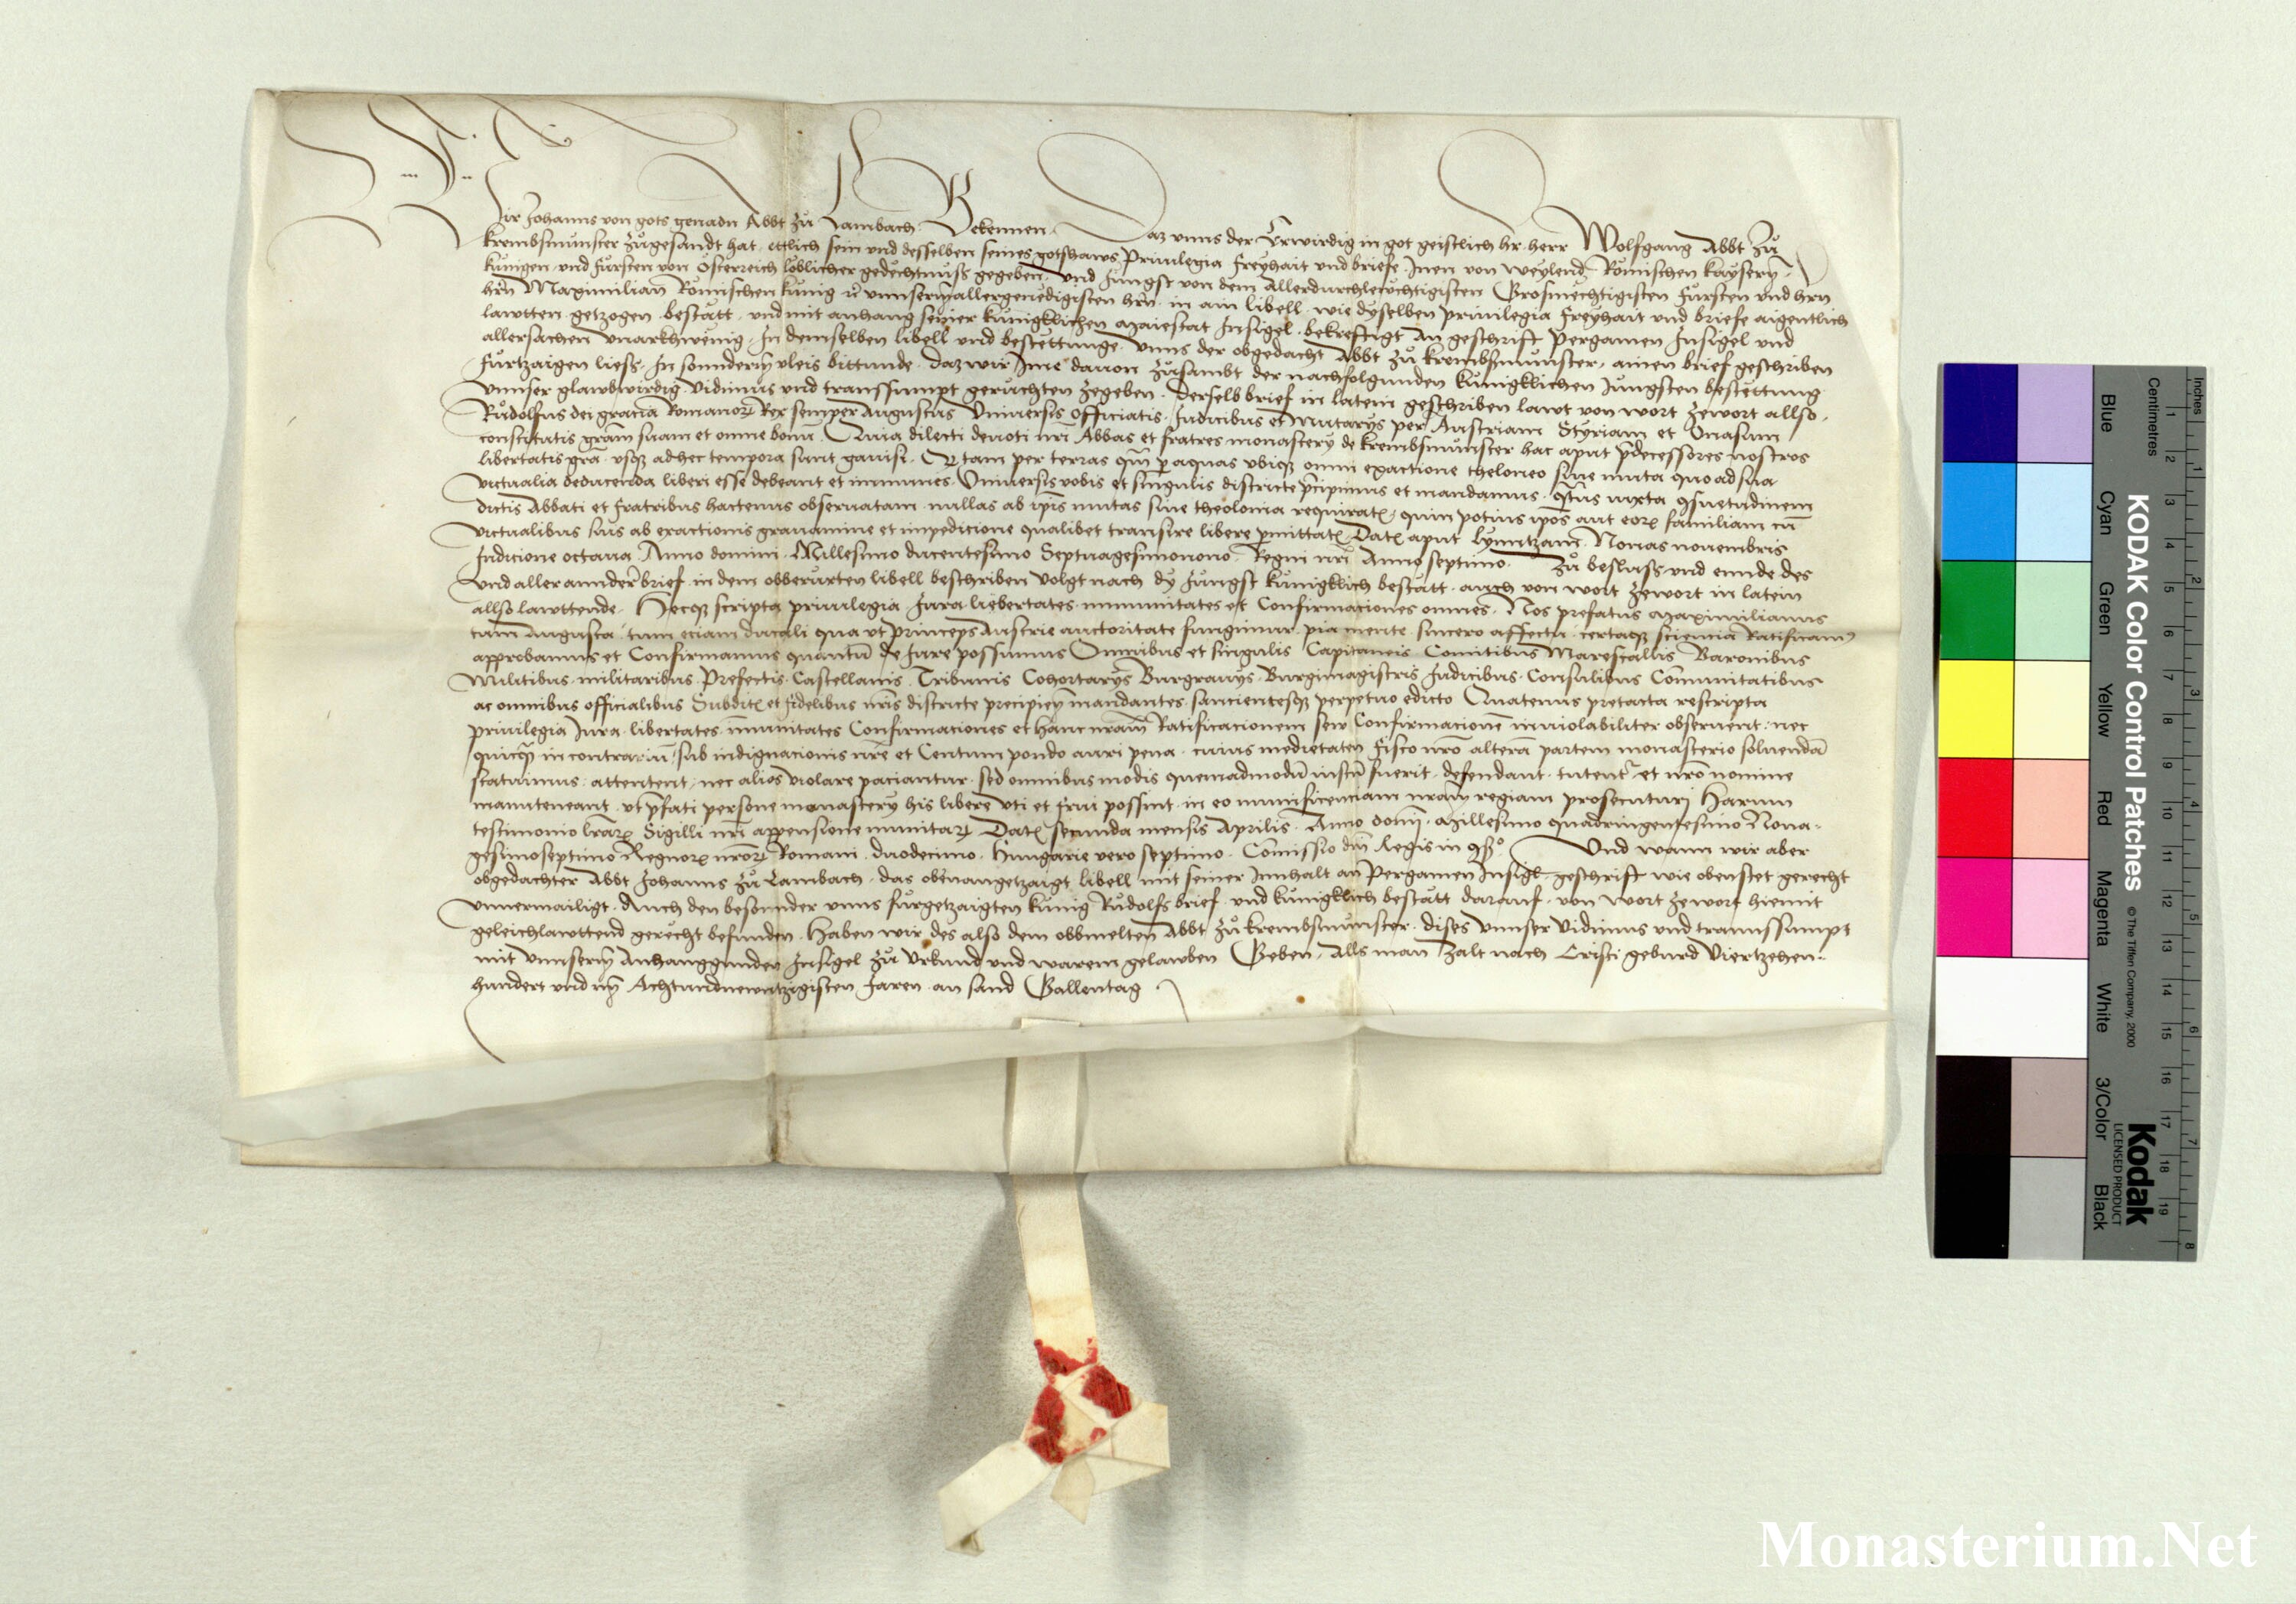 Wir Johanns von gots genadn Abbt zů Lambach. Bekennen. Daz unns der Erwirdig in got geistlich hr. herr Wolfgang Abbt zů
krembsmůnster zůgesandt hat, ettlich sein und desselben seines gotshaws Privilegia freyhait und briefe Inen von weylend Römischen kaysern,
kůnigen und fůrsten von Österreich löblicher gedechtnůss gegeben, und Jungst von dem Allerdurchleuchtigisten Grosmechtigisten fůrsten und hrn
hrn Maximilian Römischen kůnig unnserm allergenedigisten hrn in ain libell wie dyselben privilegia freyhait und briefe aigentlich
lawtten getzogen bestått und mit anhang seiner kůnigklichen Maiestat Insigel bekreftigt an geschrift Pergamen Insigel und
allersachen unarkhwenig In demselben libell und bestettunge. Unns der obgedacht Abbt zů krembsmůnster, ainen brief geschriben
fůrtzaigen liess, In sonnderm vleis bittunde daz wir Ime davon zůsambt der nachfolgunden kůnigklichen Jungsten bestettung
Unnser glawbwirdig Vidimus und transsumpt geruchten zegeben. Derselb brief in latein geschriben lawt von wort zewort allso.
Růdolfus dei gracia Romanorꝝ Rex semper Augustus Universis officiatis Judicibus et Mutarys per Austriam Styriam et Anasum
constitutis grām suam et omne bonū. Quia dilecti devoti nrī Abbas et fratres monastery de krembsmůnster hac aput p̄decessores nostros
libertatis grā usqꝫ ad hec tempora sunt gavisi. Qꝫ tam per terras qm̄ p aquas ubiqꝫ omni exactione theloneo sive muta quo ad sua
victualia deducenda liberi esse debeant et immunes. Universis vobis et singulis districte p̄cipimus et mandamus. qtūs iuxta ꝯsuetudinem
dictis Abbati et fratribus hactenus observatam nullas ab ip̄is mutas sive theolonia requiratꝭ, quin potius ip̄os aut eorꝝ familiam cū
victualibus suis ab exactionis gravamine et impeditione qualibet transire libere p̄mittatꝭ Datꝭ aput Lynntzam Nonas novembris
Indicione octava Anno domini Millesimo ducentesimo Septuagesimonono. Regni nrī Anno septimo. Zů besluss und ennde des
und aller annder brief in dem obberurten libell beschriben Volgt nach dy Jungst kůnigklich bestått. auch von wort zewort in latein
allso lawttende. Hecqꝫ scripta privilegia Jura libertates immunitates et Confirmationes omnes. Nos prefatus Maximilianus
tam Augusta, tum eciam ducali qua ut princeps Austrie auctoritate fungimur. pia mente sincero affectu certaqꝫ sciencia Ratificam
approbamus et Confirmamus quantū de Jure possumus Omnibus et singulis Capitaneis Comitibus Marescallis Baronibus
Militibus militaribus Prefectis Castellanis Tribunis Cohortarys Burgravys Burgimagistris Judicibus Consulibus Communitatibus
ac omnibus officialibus Subditꝭ et fidelibus nrīs districte precipien̄ mandantes sancientesqꝫ perpetuo edicto Quatenus pretacta rescripta
privilegia Iura libertates immunitates Confirmationes et hanc nrām Ratificacionem sew Confirmationē inviolabiliter observent, nec
quicqꝫ in contrariū, sub indignacionis nrē et Centum pondo auri pena cuius medietatem fisco nrō alterā partem monasterio solvendā
statuimus attentent, nec alios violare paciantur. sed omnibus modis quemadmodū iustū fuerit defendant tutent et nrō nomine
manuteneant ut p̄fati persone monastery his libere uti et frui possint in eo munificenciam nrām regiam prosecuturi Harum
testimonio lrārꝝ Sigilli nrī appensione munitarꝝ Datꝭ secunda mensis Aprilis. Anno domī Millesimo quadringentesimo Nona-
gesimoseptimo Regnorꝝ nrōrꝝ Romani duodecimo. Hungarie vero septimo. Comissio dnī Regis in ꝯsº. Und wann wir aber
obgedachter Abbt Johanns zů Lambach, das obenangetzaigt libell mit seiner Innhalt an Pergamen Insigl geschrift wie obenstet gerecht
unvermailigt. Auch den besonnder unns fůrgetzaigten kůnig Růdolfs brief und kůnigklich bestått darauf von wort zewort hiemit
geleichlawttend gerecht befunden. Haben wir des also dem obbmelten Abbt zů krembsmůnster dises unnser Vidimus und trannssumpt
mit unnserm Anhanggunden Insigel zů Urkund und warem gelawben Geben, Alls man zalt nach Cristi geburd Viertzehen-
hundert und im Achtundnewntzigisten Jaren an sand Gallentag
Inches
Centimetres
KODAK Color Control Patches
© The Tiffen Company, 2000
Kodak
LICENSED PRODUCT
Blue Cyan Green Yellow Red Magenta White 3/Color Black
1 2 3 4 5 6 7 8 9 10 11 12 13 14 15 16 17 18 19
1 2 3 4 5 6 7 8
Monasterium.Net